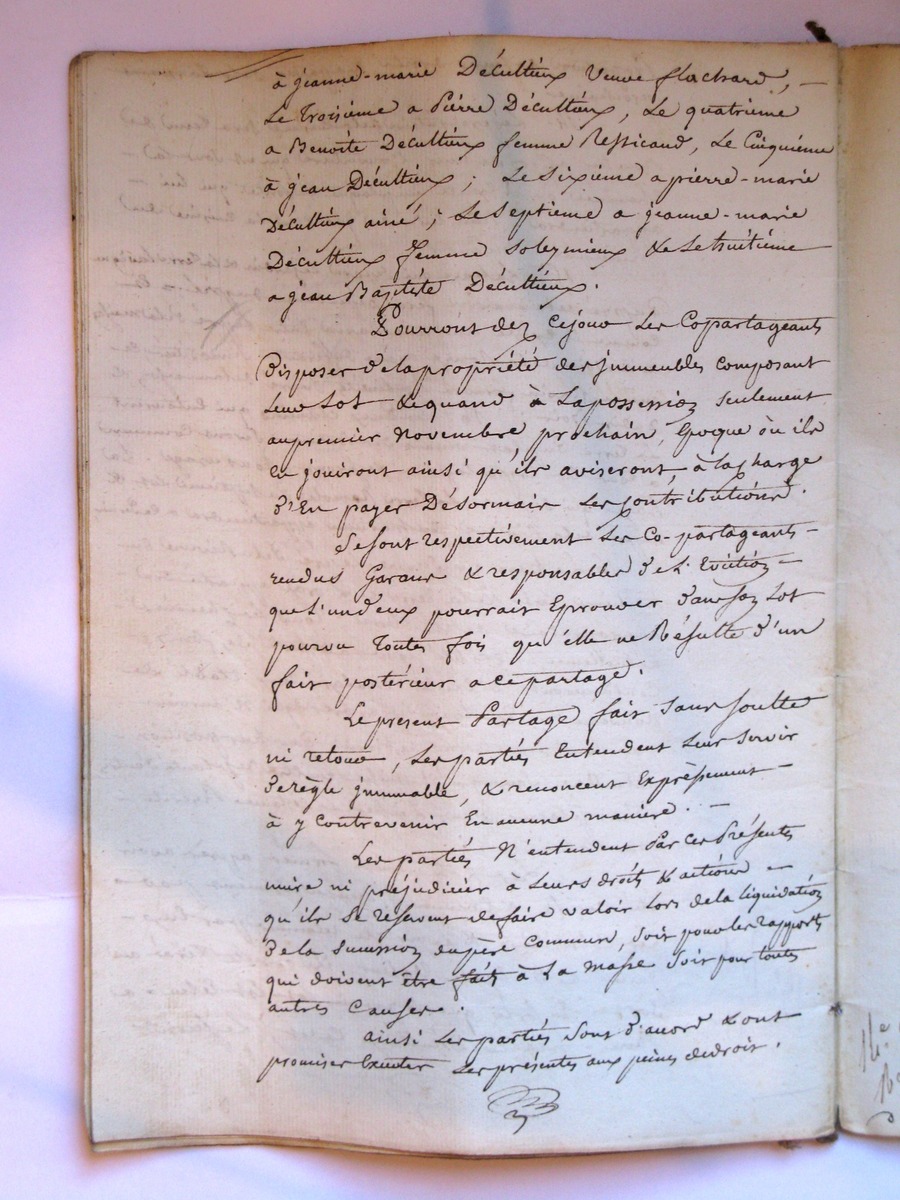 à jeanne-marie Décultieux Veuve flachard, –
Le Troisième a Pierre Décultieux, Le quatrieme
a Benoîte Décultieux femme Ressicaud, Le Cinquième
à jean Décultieux ; Le Sixième a pierre-marie
Décultieux ainé ; Le Septieme a jeanne-marie
Décultieux femme Soleymieux & Le huitième
a jean Baptiste Décultieux.
Pourront dez Cejour Les Copartageants
Disposer de la propriété des jmmeubles composant
Leur Lot & quand à La possession seulement
au premier Novembre prochain, Epoque où ils
En jouiront ainsi qu'ils aviseront, à la charge
d'En payer Désormais Les Contributions.
Se sont respectivement Les Co-partageants –
rendus Garans & responsables de L'Eviction –
que L'un d'eux pourrait Eprouver dans son Lot
pourvu Toutes fois qu'elle ne Résulte d'un
fait postérieur a ce partage.
Le present Partage fait Sans Soulte
ni retour, Les parties Entendent Leur Servir
de règle jmmuable, & renoncent Expressement –
à y Contrevenir En aucune manière. –
Les parties N'entendent Par Ces Présentes
nuire ni préjudicier à Leurs droits & actions –
qu'ils se reservent de faire valoir Lors de la liquidation
de la Succession du père Commun, soit pour les rapports
qui doivent être fait à La masse soit pour toutes
autres Causes.
ainsi Les parties Sont d'accord & ont
promis Exécuter Les présentes aux peines de droit.